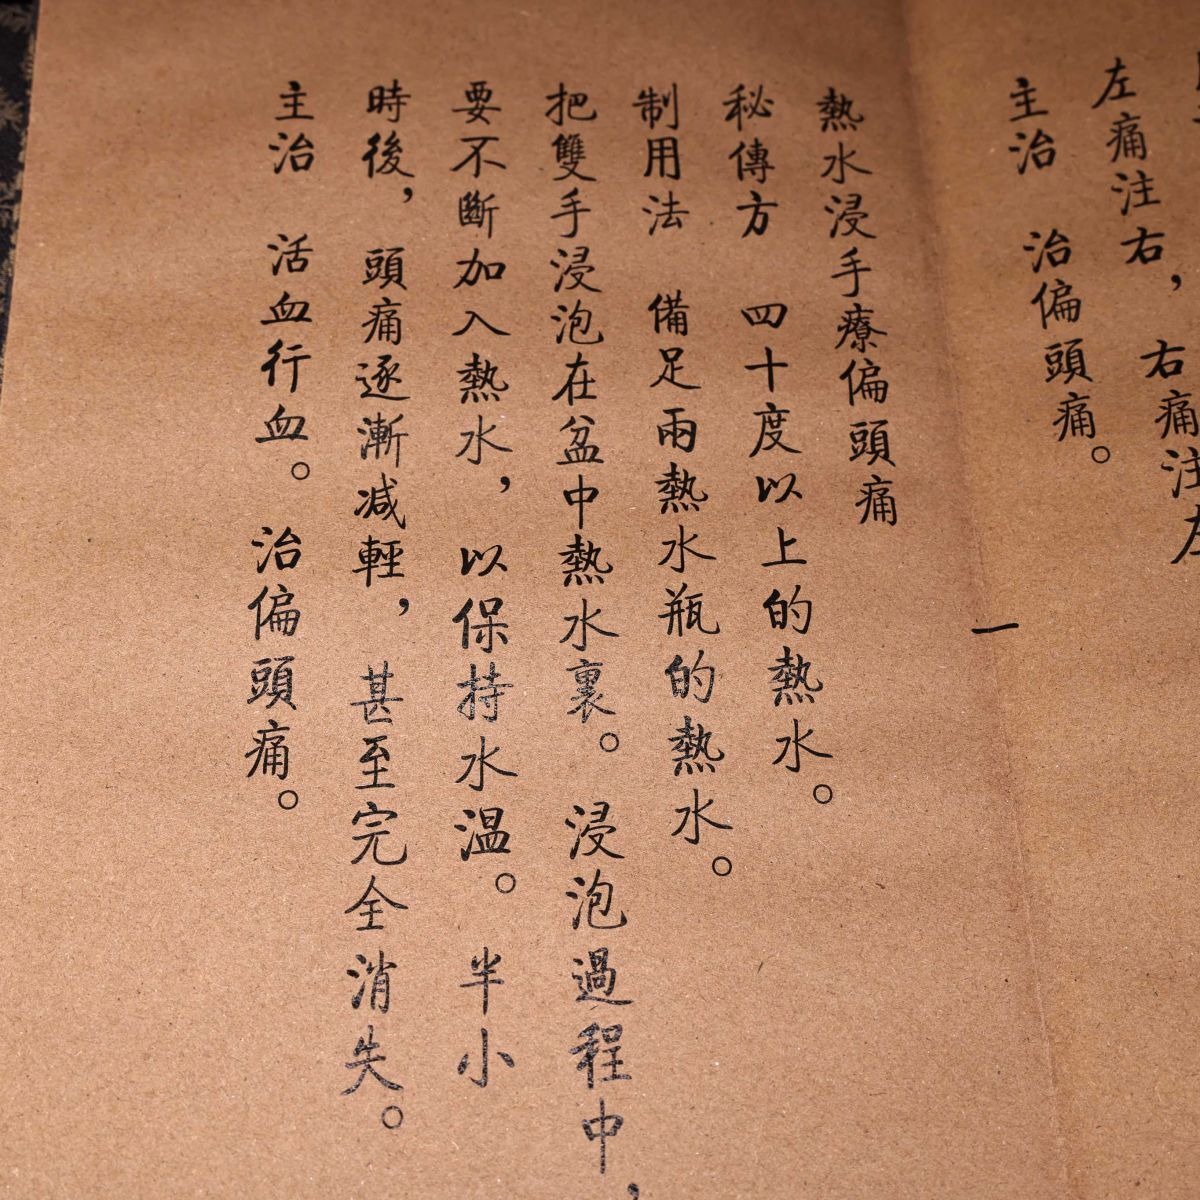 左痛注右，右痛注左
主治　治偏頭痛。
一
熱水浸手療偏頭痛
秘傳方　四十度以上的熱水。
制用法　備足兩熱水瓶的熱水。
把雙手浸泡在盆中熱水裏。浸泡過程中，
要不斷加入熱水，以保持水温。半小
時後，頭痛逐漸减輕，甚至完全消失。
主治　活血行血。治偏頭痛。